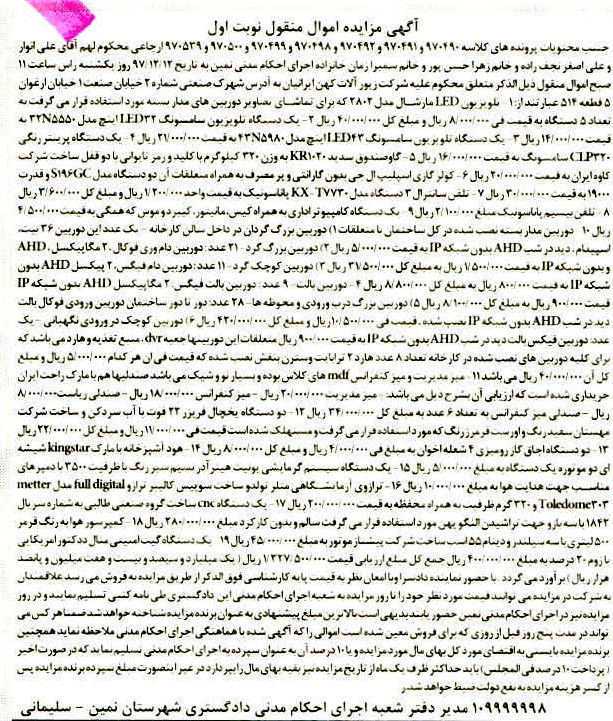 آگهی مزایده اموال منقول نوبت اول
حسب محتویات پرونده های کلاسه ۹۷۰۴۹۰ و ۹۷۰۴۹۱ و ۹۷۰۴۹۲ و ۹۷۰۴۹۸ و ۹۷۰۴۹۹ و ۹۷۰۵۰۰ و ۹۷۰۵۳۹ ارجاعی محکوم لهم آقای علی انوار
و علی اصغر نجف زاده و خانم زهرا حسن پور و خانم سمیرا زمان خانزاده اجرای احکام مدنی نمین به تاریخ ۹۷/۱۲/۱۲ روز یکشنبه راس ساعت ۱۱
صبح اموال منقول ذیل الذکر متعلق محکوم علیه شرکت زیور آلات کهن ایرانیان به آدرس شهرک صنعتی شماره ۲ خیابان صنعت ۱ خیابان ارغوان
۵ قطعه ۵۱۴ عبارتند از: ۱- تلویزیون LED مارشال مدل ۲۸۰۲ که برای تماشای تصاویر دوربین های مدار بسته مورد استفاده قرار می گرفت به
تعداد ۵ دستگاه به قیمت فی ۸/۰۰۰/۰۰۰ ریال و مبلغ کل ۴۰/۰۰۰/۰۰۰ ریال ۲- یک دستگاه تلویزیون سامسونگ LED۳۲ اینچ مدل ۳۲N۵۵۵۰ به
قیمت ۱۴/۰۰۰/۰۰۰ ریال ۳- یک دستگاه تلویزیون سامسونگ LED۴۳ اینچ مدل ۴۳N۵۹۸۰ به قیمت ۲۱/۰۰۰/۰۰۰ ریال ۴- یک دستگاه پرینتر رنگی
CLP۳۲۰ سامسونگ به قیمت ۱۶/۰۰۰/۰۰۰ ریال ۵- گاوصندوق سدید KR۱۰۲۰ به وزن ۳۲۰ کیلوگرم با کلید و رمز تایوانی با دو قفل ساخت شرکت
کاوه ایران به قیمت ۲۰/۰۰۰/۰۰۰ ریال ۶- کولر گازی اسپلیت ال جی بدون گارانتی و پر مصرف به همراه متعلقات آن دو دستگاه مدل S۱۹۶GC و قدرت
۱۹۰۰۰ به قیمت ۳۰/۰۰۰/۰۰۰ ریال ۷- تلفن سانترال ۳ دستگاه مدل KX-T۷۷۳۰ پاناسونیک به قیمت واحد ۱/۲۰۰/۰۰۰ ریال و مبلغ کل ۳/۶۰۰/۰۰۰ ریال
۸- تلفن بیسیم پاناسونیک مبلغ ۲/۱۰۰/۰۰۰ ریال ۹- یک دستگاه کامپیوتر اداری به همراه کیس، مانیتور، کیبرد و موس که همگی به قیمت ۴/۵۰۰/۰۰۰
ریال ۱۰- دوربین مدار بسته نصب شده در کل ساختمان با متعلقات ۱) دوربین بزرگ گردان در داخل سالن کارخانه - یک عدد این دوربین ۳۶ بیت،
اسپیدام، دید در شب AHD بدون شبکه IP به قیمت ۵/۰۰۰/۰۰۰ ریال ۲) دوربین بزرگ گرد - ۲۱ عدد: دوربین دام وری فوکال، ۲ مگاپیکسل، AHD
و بدون شبکه IP به قیمت ۱/۵۰۰/۰۰۰ ریال به مبلغ کل ۳۱/۵۰۰/۰۰۰ ریال ۳) دوربین کوچک گرد - ۱۱ عدد: دوربین دام فیگس، ۲ پیکسل AHD بدون
شبکه IP به قیمت ۸۰۰/۰۰۰ ریال به مبلغ کل ۸/۸۰۰/۰۰۰ ریال ۴- دوربین بالت - ۹ عدد: دوربین بالت فیگس، ۲ مگاپیکسل AHD بدون شبکه IP
قیمت ۹۰۰/۰۰۰ ریال به مبلغ کل ۸/۱۰۰/۰۰۰ ریال ۵) دوربین بزرگ درب ورودی و محوطه ها - ۲۸ عدد: دور تا دور ساختمان دوربین ورودی فوکال بالت
دید در شب AHD بدون شبکه IP نصب شده، قیمت فی ۱۰/۵۰۰/۰۰۰ ریال و مبلغ کل ۴۲۰/۰۰۰/۰۰۰ ریال ۶) دوربین کوچک در ورودی نگهبانی - یک
عدد: دوربین فیکس بالت دید در شب AHD بدون شبکه IP به قیمت ۹۰۰/۰۰۰ ریال متعلقات این دوربینها جعبه dvr، منبع تغذیه و هارد می باشد که
برای کلیه دوربین های نصب شده در کارخانه تعداد ۸ عدد هارد ۲ ترابایت وسترن بنفش نصب شده که قیمت فی ان هر کدام ۵/۰۰۰/۰۰۰ ریال و مبلغ
کل آن ۴۰/۰۰۰/۰۰۰ ریال می باشد ۱۱- میز مدیریت و میز کنفرانس mdf های کلاس بوده و بسیار نو و شیک می باشد صندلیها هم با مارک راحت ایران
خریداری شده است که ارزیابی آن بشرح ذیل می باشد: - میز مدیریت ۲۰/۰۰۰/۰۰۰ ریال - میز کنفرانس ۱۸/۰۰۰/۰۰۰ ریال - صندلی ریاست ۸/۰۰۰/۰۰۰
ریال - صندلی میز کنفرانس به تعداد ۶ عدد به مبلغ کل ۳۴/۰۰۰/۰۰۰ ریال ۱۲- دو دستگاه یخچال فریزر ۲۲ فوت با آب سردکن و ساخت شرکت
مهستان سفید رنگ و اورست قرمز رنگ که مورد استفاده قرار می گرفت و مستهلک شده است قیمت فی ۱۱/۰۰۰/۰۰۰ ریال و مبلغ کل ۲۲/۰۰۰/۰۰۰ ریال
۱۳- دو دستگاه اجاق گاز رومیزی ۴ شعله اخوان به مبلغ فی ۴/۰۰۰/۰۰۰ ریال و مبلغ کل ۸/۰۰۰/۰۰۰ ریال ۱۴- هود آشپزخانه با مارک kingstar شیشه
ای دو موتوره یک دستگاه به مبلغ ۵/۰۰۰/۰۰۰ ریال ۱۵- یک دستگاه سیستم گرمایشی یونیت هیتر آذر نسیم سبز رنگ با ظرفیت ۳۵۰۰ با دمپر های
مناسب جهت هدایت هوا به مبلغ ۱۰/۰۰۰/۰۰۰ ریال ۱۶- ترازوی آزمایشگاهی متلر تولدو ساخت سوییس کالیبر ترازو full digital مدل metter
Toledome۳۰۳ و ۳۲۰ گرم ظرفیت به همراه محفظه به قیمت ۲۰۰/۰۰۰/۰۰۰ ریال ۱۷- یک دستگاه cnc ساخت گروه صنعتی طالبی به شماره سریال
۱۸۴۲ با سه بازو جهت تراشیدن النگو پهن مورد استفاده قرار می گرفت سالم و بدون کارکرد مبلغ ۲۸۰/۰۰۰/۰۰۰ ریال ۱۸- کمپرسور هوا به رنگ قرمز
۵۰۰ لیتری با سه سیلندر و دینام ۵۵ اسب ساخت شرکت پیشتاز موتور به مبلغ ۴۵/۰۰۰/۰۰۰ ریال ۱۹- یک دستگاه گیت امنیتی متال ددکتور امریکایی
با زوم ۲۰ درصد به مبلغ ۴۰۰/۰۰۰/۰۰۰ ریال جمع کل مبلغ ارزیابی قیمت ۱/۳۲۷/۵۰۰/۰۰۰ ریال ( یک میلیارد و سیصد و بیست و هفت میلیون و پانصد
هزار ریال ) برآورد می گردد. با حضور نماینده دادسرا و با امعان نظر به قیمت پایه کارشناسی فوق الذکر از طریق مزایده به فروش می رسد علاقمندان
به شرکت در مزایده می توانند قیمت مورد نظر خود را تا روز مزایده به شعبه اجرای احکام مدنی این دادگستری طی نامه کتبی تسلیم نمایند و در روز
مزایده نیز در اجرای احکام مدنی نمین حضور یابند بدیهی است بالاترین مبلغ پیشنهادی به عنوان برنده مزایده شناخته خواهد شد ضمنا هر کس می
تواند در مدت پنج روز قبل از روزی که برای فروش معین شده است اموالی را که آگهی شده با هماهنگی اجرای احکام مدنی ملاحظه نماید همچنین
برنده مزایده بایستی به اقتضای مورد کل بهای مال مورد مزایده و یا ۱۰ درصد آن به عنوان سپرده به اجرای احکام مدنی تسلیم نماید که در صورت اخیر
( پرداخت ۱۰ درصد فی المجلس) باید حداکثر ظرف یک ماه از تاریخ مزایده نیز بقیه بهای مال را بپردازد در غیر اینصورت مبلغ سپرده برنده مزایده پس
از کسر هزینه مزایده به نفع دولت ضبط خواهد شد.ر
۱۰۹۹۹۹۹۹۸ مدیر دفتر شعبه اجرای احکام مدنی دادگستری شهرستان نمین - سلیمانی